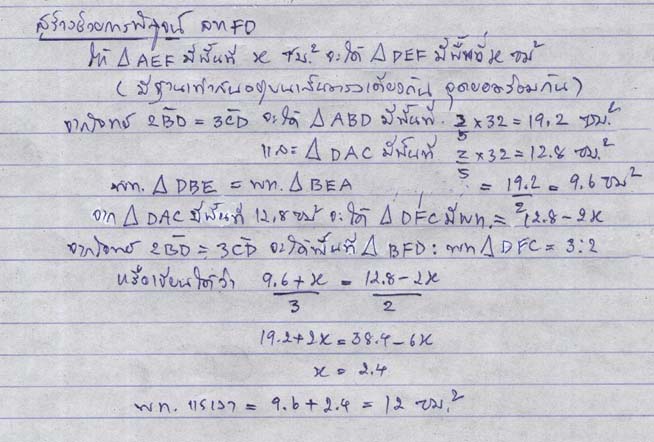 สร้างช่วยการพิสูจน์ ลาก FD
ให้ △ AEF มีพื้นที่ x ซม.² จะได้ △ DEF มีพื้นที่ x ซม²
(มีฐานเท่ากันอยู่บนเส้นตรงเดียวกัน จุดยอดร่วมกัน)
จากโจทย์ 2BD = 3CD จะได้ △ ABD มีพื้นที่ 3/5 × 32 = 19.2 ซม.²
และ △ DAC มีพื้นที่ 2/5 × 32 = 12.8 ซม.²
พท. △ DBE = พท. △ BEA = 19.2/2 = 9.6 ซม²
จาก △ DAC มีพื้นที่ 12.8 ซม² จะได้ △ DFC มีพท. = 12.8 - 2x
จากโจทย์ 2BD = 3CD จะได้พื้นที่ △ BFD : พท △ DFC = 3:2
หรือเขียนได้ว่า 9.6 + x / 3 = 12.8 - 2x / 2
19.2 + 2x = 38.4 - 6x
x = 2.4
พท. แรเงา = 9.6 + 2.4 = 12 ซม.²